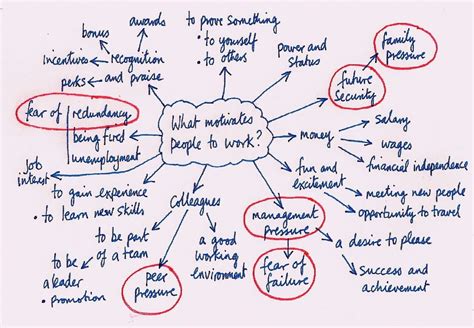 awards
bonus
to prove something
• to yourself
• to others
incentives
recognition
and praise
perks
power and
status
family
pressure
future
security
fear of
redundancy
being fired
unemployment
What motivates
people to work?
money
salary
wages
financial independence
job
interest
fun and
excitement
meeting new people
opportunity to travel
to gain experience
• to learn new skills
Colleagues
management
pressure
a desire to please
to be part
of a team
a good
working
environment
to be
a leader
• promotion
peer
pressure
fear of
failure
success and
achievement